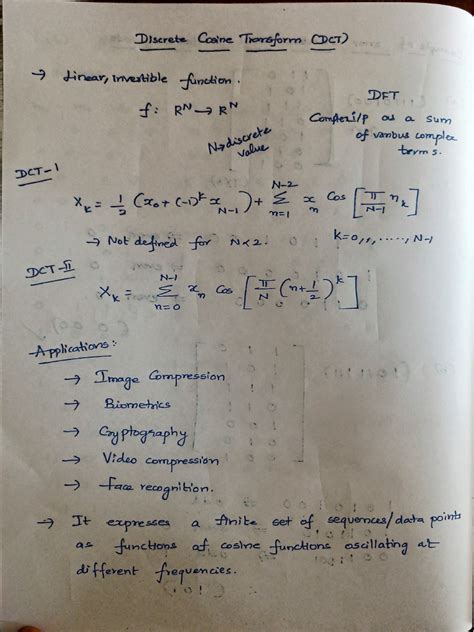 Discrete Cosine Transform (DCT)
→ Linear, invertible function.
f: R^N → R^N
N→discrete value
DFT
Converi/p as a sum
of various complex
terms.
DCT-1
X_k = 1/2 (x_0 + (-1)^k x_{N-1}) + Σ_{n=1}^{N-2} x_n Cos [π/(N-1) n_k]
→ Not defined for N<2.
k=0,1,....., N-1
DCT-II
X_k = Σ_{n=0}^{N-1} x_n Cos [π/N (n+1/2)^k]
Applications:
→ Image Compression
→ Biometrics
→ Cryptography
→ Video compression
→ Face recognition.
→ It expresses a finite set of sequences/data points
as functions of cosine functions oscillating at
different frequencies.